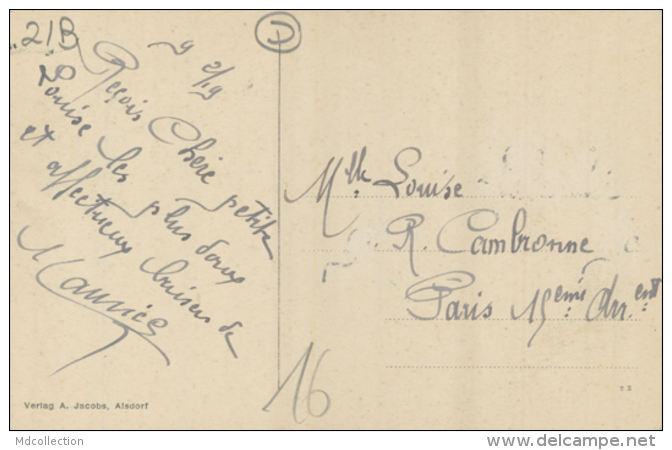 21B
7
9 2/19
Reçois Chère petite
Louise les plus doux
et affectueux baisers de
Maurice
Mlle Louise
R. Cambronne
Paris 15eme Arr.ent
16
Verlag A. Jacobs, Alsdorf
Mdcollection
www.delcampe.net